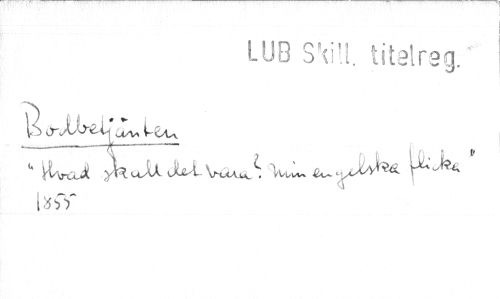 LUB Skill. titelreg.
Bodbetjänten
"Hvad skall det vara? min engelska flicka"
1855